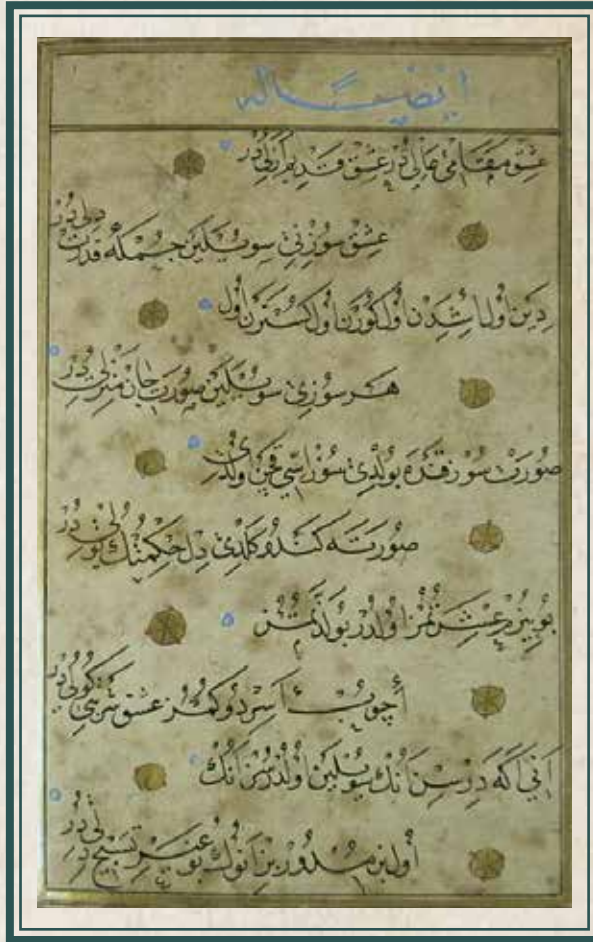 ايضا له
عشق مقامى عالى در عشق قديم ازلى در
عشق سوزنى سويلين جمله قدرت دلى در
دين اول اشدن اول كورن اول كسترن اول
هر سوزى سويلين صورت جان منزلى در
صورت سوز قنده بولدى سوز اسى قچن ولدى
صورته كندو كلدى دل حكمتك يولى در
بو بيزم عشرتمز اولدر بو لذتمز
اچوب اسردوكمز عشق شربتى كولى در
انى كه درسن انك سويلين اولدر سنك
اول بزمدور بيز انوك بو غير تسبيح دلى در